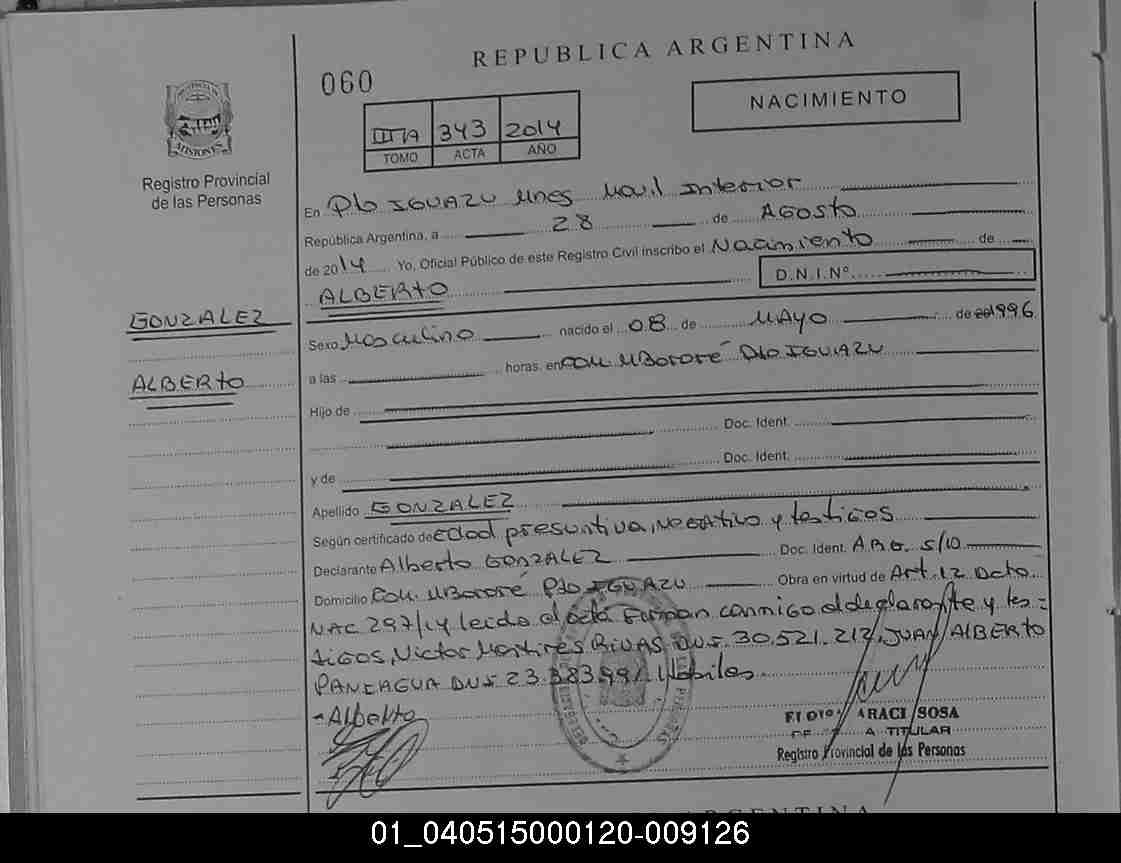 REPUBLICA ARGENTINA
060
NACIMIENTO
343 2014
TOMO ACTA AÑO
MISIONES
Registro Provincial
de las Personas
En Pto IGUAZU Mnes Movil Interior
República Argentina, a 28 de AGOSTO
de 2014 Yo, Oficial Público de este Registro Civil inscribo el Nacimiento de
ALBERTO D.N.I.Nº
GONZALEZ
ALBERTO
Sexo Masculino nacido el 08 de MAYO de 1996
a las horas. en Com. MBororé Pto IGUAZU
Hijo de
Doc. Ident.
y de Doc. Ident.
Apellido GONZALEZ
Según certificado de Edad presuntiva, Negativo y testigos
Declarante Alberto GONZALEZ Doc. Ident. ARG. S/ID
Domicilio Com. MBororé Pto IGUAZU Obra en virtud de Art. 12 Dcto
NAC 297/14 leida el acta Firman conmigo el declarante y tes=
tigos, Victor Martires RIVAS DNI. 30.521.212, JUAN ALBERTO
PANIAGUA DNI 23.383.991 Habiles
-Alberto
ARACI SOSA
A TITULAR
Registro Provincial de las Personas
ARGENTINA
01_040515000120-009126